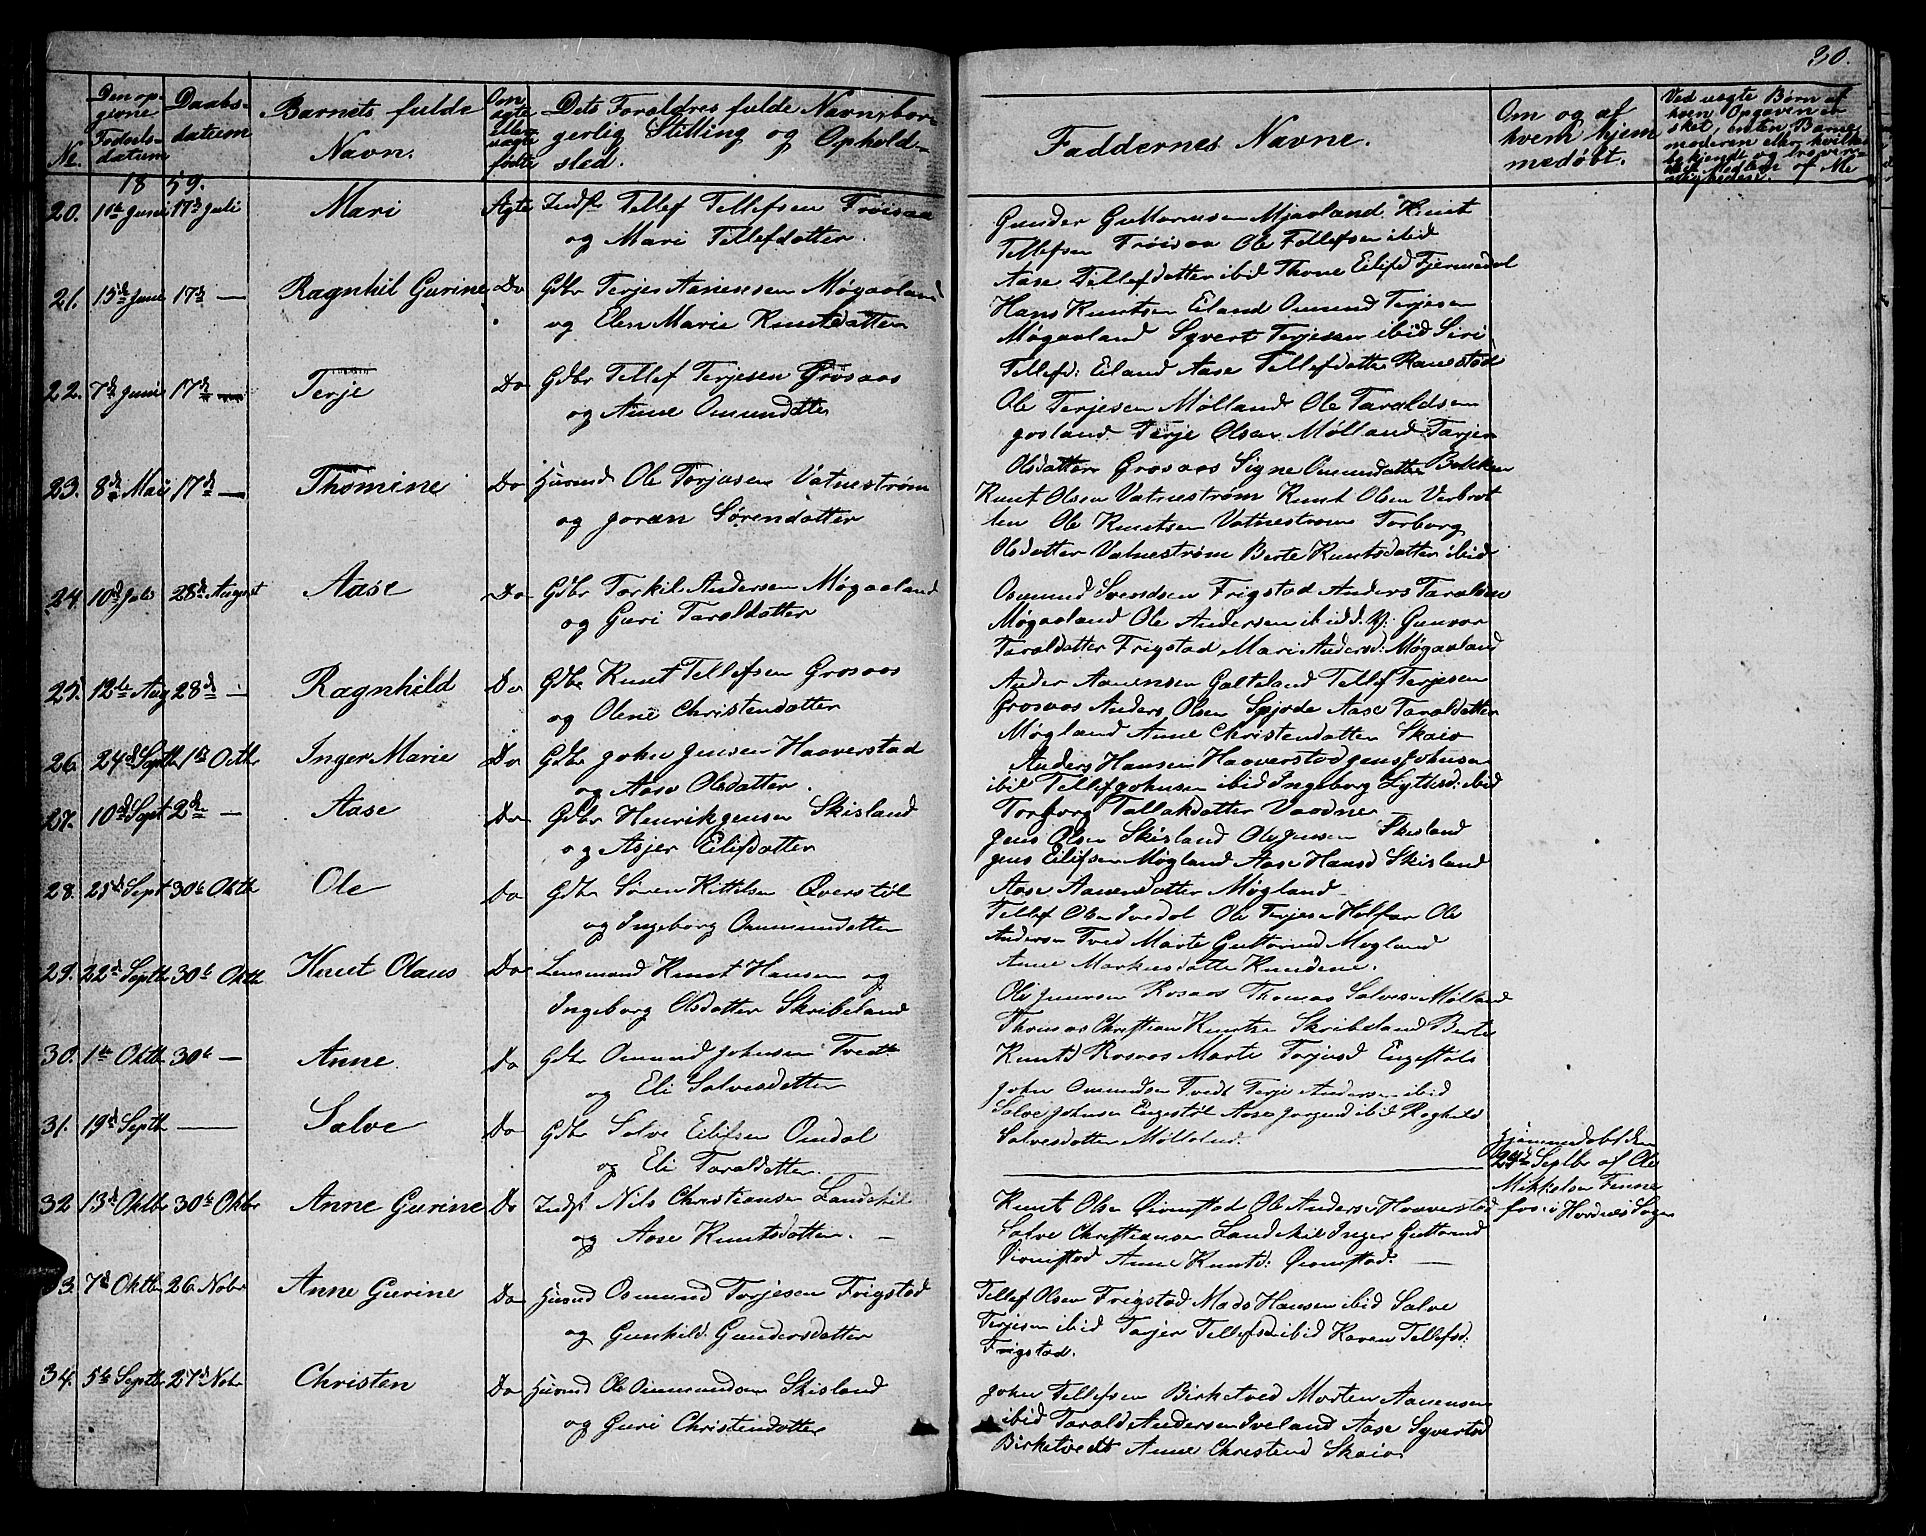 30.
No. Den opgivne Fødselsdatum
Daabsdatum
Barnets fulde Navn.
Om ægte eller uægte fødte
Dets Foreldres fulde Navn, borgerlig Stilling og Opholdsted.
Faddernes Navne.
Om og af hvem hjemmedøbt.
Ved uægte Børn af hvem Opgaven er sket, enten Barnemoderen eller
1859.
20. 11te Juni 17de Juli Mari Ægte Indst Tellef Tellefsen Frøisaa
og Mari Tellefdatter.
Gunder Guttormsen Mjaaland Knut
Tellefsen Frøisaa Ole Tellefsen ibid
Aase Tellefdatter ibid Thone Eilefd Fjermedal
21. 15de Juni 17de — Ragnhil Gurine Do Gdbr Terjes Aanensen Møgaaland
og Elen Marie Knutsdatter
Hans Knutsen Eiland Omund Terjesen
Møgaaland Syvert Terjesen ibid Siri
Tellefd: Eiland Aase Tellefdatter Ranestad
22. 7de Juni 17de — Terje Do Gdbr Tellef Terjesen Grosaas
og Anne Omundatter
Ole Terjesen Mølland Ole Taraldsen
Josland Terje Olsen Mølland Tarjer
Olsdatter Grosaas Signe Omundatter Bakken
23. 8de Mai 17de — Thomine Do Husmd Ole Torjusen Vatnestrøm
og Joran Sørendatter
Knut Olsen Vatnestrøm Knut Olsen Verbrot
ten Ole Knutsen Vatnestrøm Torborg
Olsdatter Vatnestrøm Berte Knutsdatter ibid
24. 10de Juli 28de August Aase Do Gdbr Torkil Andersen Møgaaland
og Guri Taraldatter
Osmund Svendsen Frigstad Anders Taraldsen
Møgaaland Ole Andersen ibid d. y. Gunvor
Taraldatter Frigstad Mari Andersd: Møgaaland
25. 12te Aug 28de — Ragnhild Do Gdbr Knut Tellefsen Grosaas
og Olene Christendatter
Ander Aanensen Galteland Tellef Terjesen
Grosaas Anders Olsen Sjøde Aase Taraldatter
Møgland Anne Christendatter Skaio
26. 24de Septbr 1te Octbr Inger Marie Do Gdbr John Jensen Haaverstad
og Aase Olsdatter.
Anders Hansen Haaverstad Jens Johnsen
ibid Tellef Johnsen ibid Ingeborg ibid
Torborg Tallakdatter Vaadne
27. 10de Sept 2de — Aase Do Gdbr Henrik Jensen Skisland
og Asjer Eilifdatter
Jens Olsen Skisland Ole Jensen Skisland
Jens Eilifsen Møgland Aase Hansd Skisland
Aase Aanendatter Møgland
28. 25de Sept 30te Oktbr Ole Do Gdbr Søren Kittelsen Øverstøl
og Ingeborg Ommundatter
Tellef Olsen Ivedal Ole Terjesen Holfar Ole
Andersen Tved Marte Guttormd Møgland
Anne Markusdatter
29. 22de Septbr 30te Oktbr Knut Olaus Do Lensmand Knut Hansen og
Ingeborg Olsdatter Skribeland
Ole Rosaas Thomas Salvesen Mølland
Thomas Christian Knutsen Skribeland Berte
Knutd Rosaas Marte Torjusd Engestøl
30. 1te Oktbr 30te — Anne Do Gdbr Omund Johnsen Tvedt
og Eli Salvesdatter
John Omundsen Tvedt Terje Andersen ibid
Salve Johnsen Engestøl Aase ibid Raghild
Salvesdatter
31. 19de Septbr — Salve Do Gdbr Salve Eilifsen Omdal
og Eli Taraldatter.
hjemmedøbt den
24de Septbr af Ole
Mikkelsen Finne
fos i Hordnes Sogn
32 13de Oktbr 30te Oktbr Anne Gurine Do Indst Nils Christiansen Landehil
og Aase Knutsdatter. —
Knut Olsen Øionstad Ole Anders: Haaverstad
Salve Christiansen Landehil Inger Guttormd
Øionstad Anne Knutd: Øionstad. —
33. 7de Oktbr 26. Nobr Anne Gurine Do Husmd Osmund Torjesen Frigstad
og Gunhild Gundersdatter
Tellef Olsen Frigstad Mads Hansen ibid Salve
Terjesen ibid Tarjer Tellefsd ibid Karen Tellefsd:
Frigstad.
34. 5te Septbr 27de Nobr Christen Do Husmd Ole Ommundsen Skisland
og Guri Christendatter
John Tellefsen Birketved Morten Aanensen
ibid Tarald Andersen Iveland Aase Syvertsd
Birketvedt Anne Christend Skaio